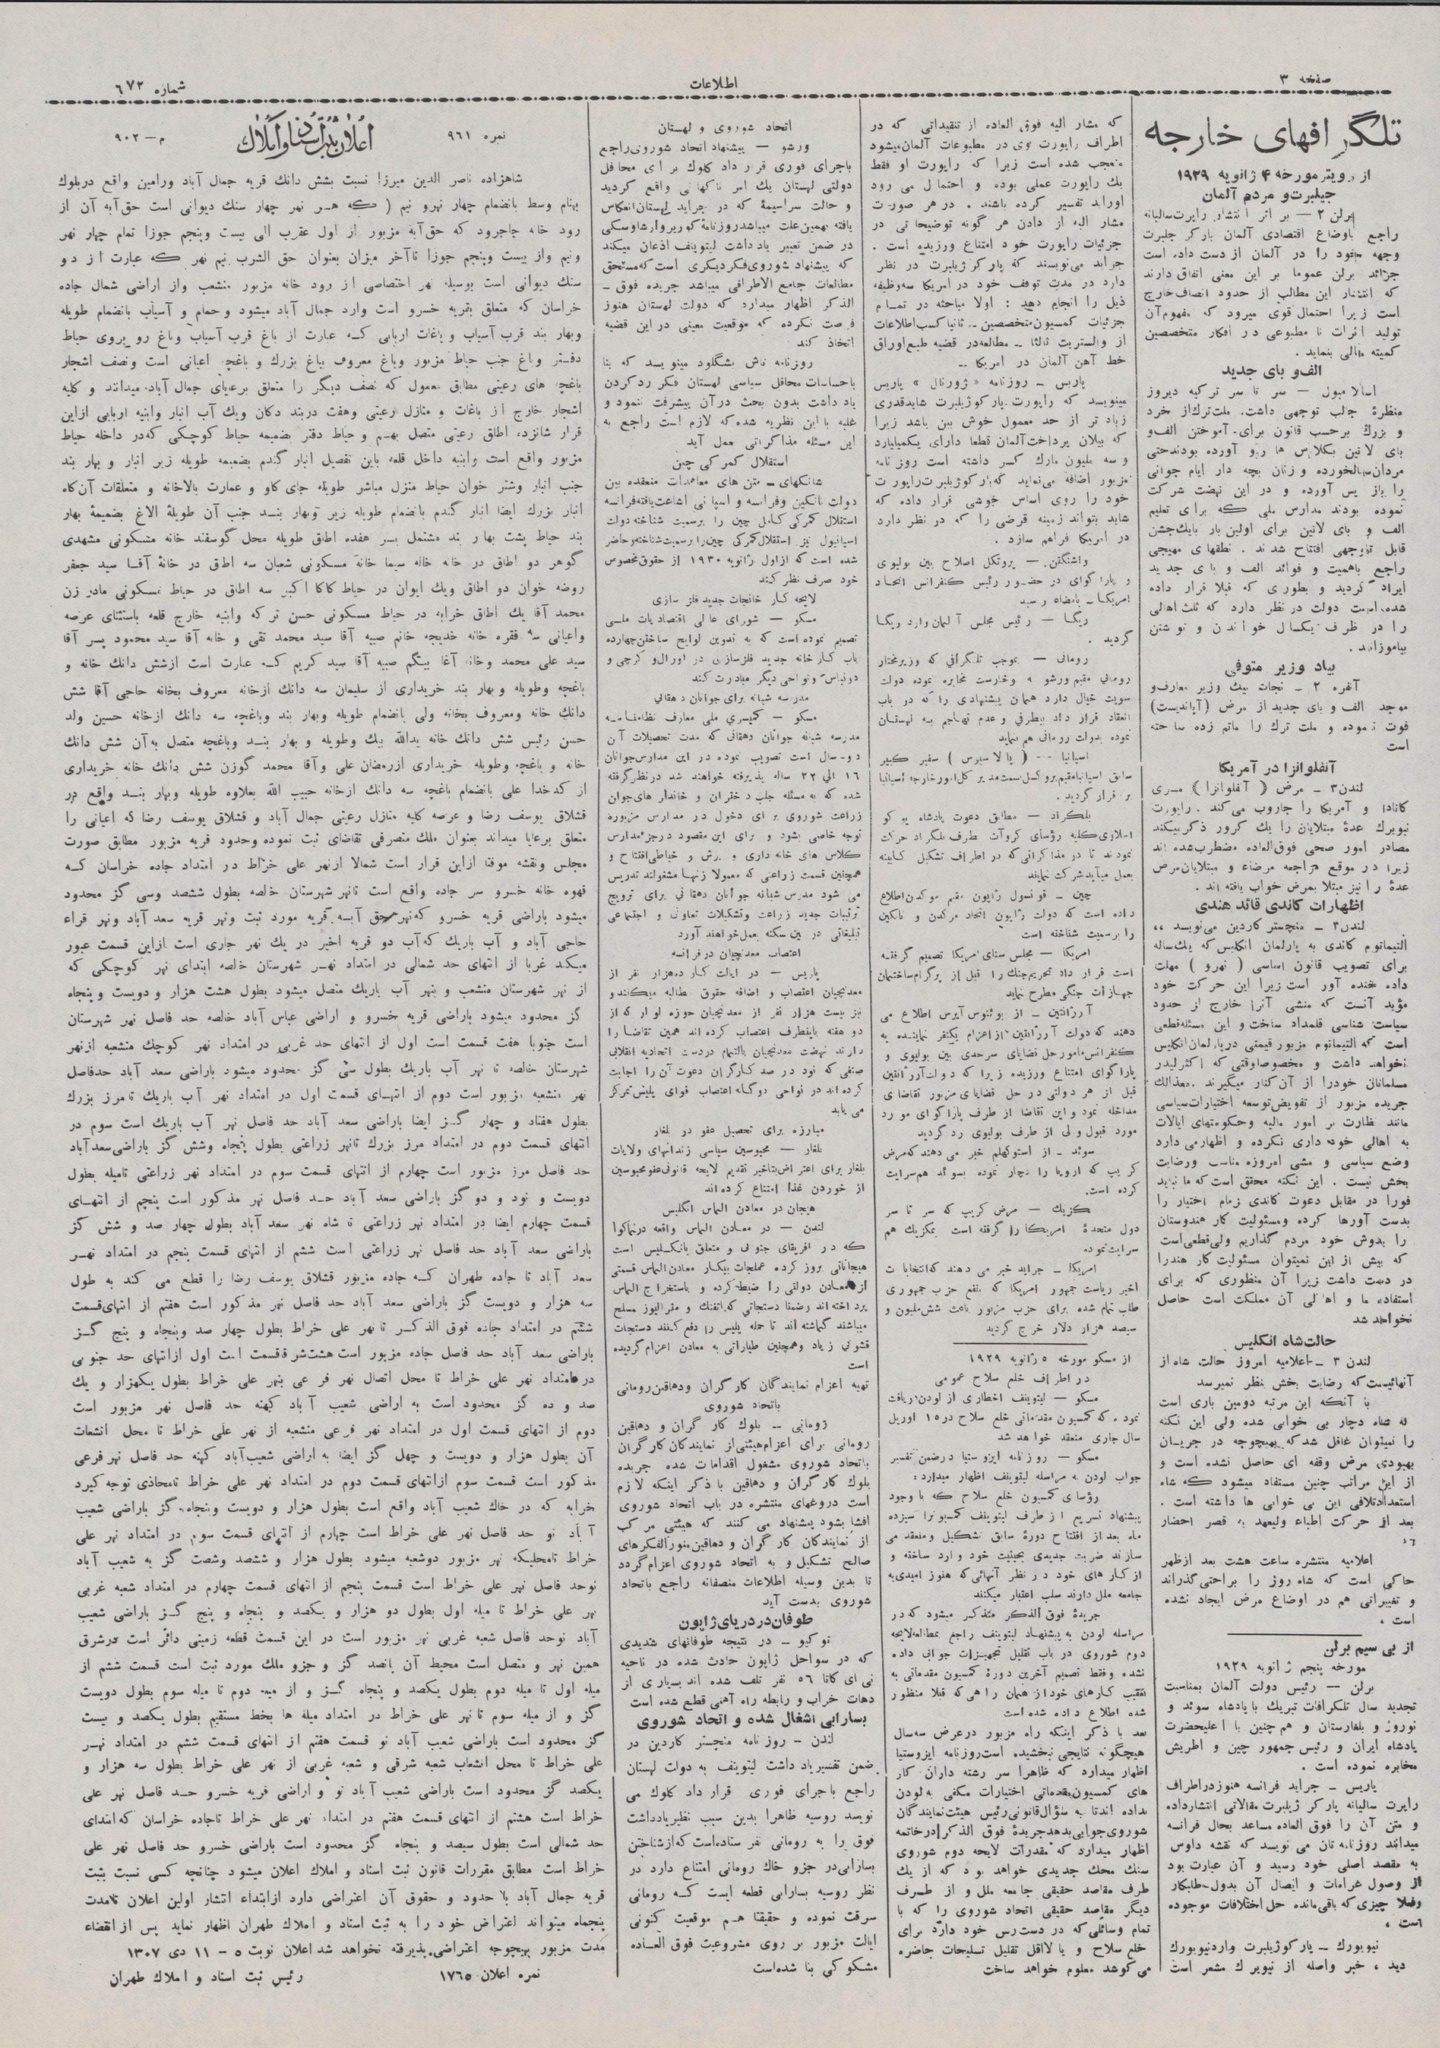 صفحه ۳
اطلاعات
شماره ۶۷۲
تلگرافهای خارجه
از رویتر مورخه ۴ ژانویه ۱۹۲۹
جیلبرت و مردم آلمان
برلن ۲ — بر اثر انتشار راپرت سالیانه
راجع باوضاع اقتصادی آلمان پارکر جلبرت
وجهه خود را در آلمان از دست داده است
جرائد برلن عموما بر این معنی اتفاق دارند
که انتشار این مطالب از حدود انصاف خارج
است زیرا احتمال قوی میرود که مفهوم آن
تولید اثرات نا مطبوعی در افکار متخصصین
کمیته مالی بنماید .
الف و بای جدید
اسلامبول — سر تا سر ترکیه دیروز
منظرهٔ جالب توجهی داشت. ملت ترك از خرد
و بزرك برحسب قانون برای آموختن الف و
بای لاتین بکلاس ها رو آورده بودند حتی
مردان سالخورده و زنان بچه دار ایام جوانی
را باز پس آورده و در این نهضت شرکت
نموده بودند مدارس ملی که برای تعلیم
الف و بای لاتین برای اولین بار با یك جشن
قابل توجهی افتتاح شدند . نطقهای مهیجی
راجع باهمیت و فوائد الف و بای جدید
ایراد گردید و بطوری که قبلا قرار داده
شده است دولت در نظر دارد که ثلث اهالی
را در ظرف یکسال خواندن و نوشتن
بیاموزاند .
بیاد وزیر متوفی
آنقره ۲ — نجات بیك وزیر معارف و
موجد الف و بای جدید از مرض (آپاندیست)
فوت نموده و ملت ترك را ماتم زده ساخته
است
آنفلوانزا در آمریکا
لندن ۳ — مرض ( آنفلوانزا ) مسری
کانادا و آمریکا را جاروب می کند . راپورت
نیویرك عدهٔ مبتلایان را یك کرور ذکر میکند
مصادر امور صحی فوق العاده مضطرب شده اند
زیرا در موقع مراجعه مرضاء و مبتلایان مرض
عدهٔ را نیز مبتلا بمرض خواب یافته اند .
اظهارات گاندی قائد هندی
لندن ۳ — منچستر گاردین می نویسد ،،
التیماتوم گاندی به پارلمان انگلیس که یك ساله
برای تصویب قانون اساسی ( نهرو ) مهلت
داده خنده آور است زیرا این حرکت خود
مؤید آنست که منشی آنرا خارج از حدود
سیاست شناسی قلمداد ساخت و این مسئله قطعی
است که التیماتوم مزبور قیمتی در پارلمان انگلیس
نخواهد داشت و مخصوصا وقتی که اکثر لیدر
مسلمانان خود را از آن کنار میگیرند . معذالك
جریده مزبور از تفویض توسعه اختیارات سیاسی
مانند نظارت بر امور مالیه و حکومتهای ایالات
به اهالی خود داری نکرده و اظهار می دارد
وضع سیاسی و مشی امروزه مناسب و رضایت
بخش نیست . این نکته محقق است که ما نباید
فورا در مقابل دعوت گاندی زمام اختیار را
بدست آورها کرده و مسئولیت کار هندوستان
را بدوش خود مردم گذاریم ولی قطعی است
که بیش از این نمیتوان مسئولیت کار هند را
در دست داشت زیرا آن منظوری که برای
استفاده ما و اهالی آن مملکت است حاصل
نخواهد شد
حالت شاه انگلیس
لندن ۳ — اعلامیه امروز حالت شاه از
آنهائیست که رضایت بخش بنظر نمیرسد
با آنکه این مرتبه دومین باری است
که شاه دچار بی خوابی شده ولی این نکته
را نمیتوان غافل شد که بهیچوجه در جریان
بهبودی مرض وقفه ای حاصل نشده است و
از این مراتب چنین مستفاد میشود که شاه
استعداد تلافی این بی خوابی ها داشته است .
بعد از حرکت اطباء ولیعهد به قصر احضار
اعلامیه منتشره ساعت هشت بعد از ظهر
حاکی است که شاه روز را براحتی گذراند
و تغییراتی هم در اوضاع مرض ایجاد نشده
است .
از بی سیم برلن
مورخه پنجم ژانویه ۱۹۲۹
برلن — رئیس دولت آلمان بمناسبت
تجدید سال تلگرافات تبریك با پادشاه سوئد و
نوروژ و بلغارستان و هم چنین با اعلیحضرت
پادشاه ایران و رئیس جمهور چین و اطریش
مخابره نموده است .
پاریس — جراید فرانسه هنوز در اطراف
راپرت سالیانه پارکر ژیلبرت مقالاتی انتشار داده
و متن آن را فوق العاده مساعد بحال فرانسه
میدانند روزنامه تان می نویسد که نقشه داوس
به مقصد اصلی خود رسید و آن عبارت بود
از وصول غرامات و ایصال آن بدول طلبکار
و فعلا چیزی که باقی مانده حل اختلافات موجوده
است .
نیویورك — پارکر ژیلبرت وارد نیویورك
دید ، خبر واصله از نیویرك مشعر است
که مشار الیه فوق العاده از تنقیداتی که در
اطراف راپورت وی در مطبوعات آلمان میشود
متعجب شده است زیرا که راپورت او فقط
یك راپورت عملی بوده و احتمال می رود
اورا بد تفسیر کرده باشند . در هر صورت
مشار الیه از دادن هر گونه توضیحاتی در
جزئیات راپورت خود امتناع ورزیده است .
جراید می نویسند که پارکر ژیلبرت در نظر
دارد در مدت توقف خود در امریکا سه وظیفه
ذیل را انجام دهد : اولا مباحثه در تمام
جزئیات کمسیون متخصصین — ثانیا کسب اطلاعات
از والستریت ثالثا — مطالعه در قضیه طبع اوراق
خط آهن آلمان در امریکا —
پاریس — روزنامه « ژورنال » پاریس
مینویسد که راپورت پارکر ژیلبرت شاید قدری
زیاد تر از حد معمول خوش بین باشد زیرا
که بیلان پرداخت آلمان قطعا دارای یکمیلیارد
و سه ملیون مارك کسر داشته است روزنامه
مزبور اضافه می نماید که پارکر ژیلبرت راپورت
خود را روی اساس خوشی قرار داده که
شاید بتواند زمینه قرضی را که در نظر دارد
در امریکا فراهم سازد .
واشنگتن — پروتکل اصلاح بین بولیوی
و پاراگوای در حضور رئیس کنفرانس اتحاد
امریکا — بامضاء رسید
ریگا — رئیس مجلس آلمان وارد ریگا
گردید .
رومانی — بموجب تلگرافی که وزیر مختار
رومانی مقیم ورشو به وخارست مخابره نموده دولت
سویت خیال دارد همان پیشنهادی را که در باب
انعقاد قرار داد بیطرفی و عدم تهاجم به لهستان
نموده بدولت رومانی هم بنماید
اسپانیا — ( پالاسیوس ) سفیر کبیر
سابق اسپانیا مقیم بروکسل بسمت مدیر کل امور خارجه اسپانیا
بر قرار گردید .
بلگراد — مطابق دعوت پادشاه یوگو
اسلاوی کلیه رؤسای کروآت بطرف بلگراد حرکت
نمودند تا در مذاکراتی که در اطراف تشکیل کابینه
بعمل میآید شرکت نمایند
چین — قونسول ژاپون مقیم موکدن اطلاع
داده است که دولت ژاپون اتحاد موکدن و نانکین
را برسمیت شناخته است
امریکا — مجلس سنای امریکا تصمیم گرفته
است قرار داد تحریم جنك را قبل از پرگرام ساختمان
جهازات جنگی مطرح نماید
آرژانتین — از بوئنوس آیرس اطلاع می
دهند که دولت آرژانتین از اعزام یکنفر نماینده به
کنفرانس مامور حل قضایای سرحدی بین بولیوی و
پاراگوای امتناع ورزیده زیرا که دولت آرژانتین
قبل از هر دولتی در حل قضایای مزبور تقاضای
مداخله نمود و این تقاضا از طرف پاراگوای مورد
مورد قبول ولی از طرف بولیوی رد گردید
سوئد — از استوکهلم خبر می دهند که مرض
کریپ که اروپا را دچار نموده بسوئد هم سرایت
کرده است .
مکزیك — مرض کریپ که سر تا سر
دول متحدهٔ امریکا را گرفته است بمکزیك هم
سرایت نموده
امریکا — جراید خبر می دهند که انتخابات
اخیر ریاست جمهور امریکا که بنفع حزب جمهوری
طلب تمام شده برای حزب مزبور باعث شش ملیون و
سیصد هزار دلار خرج گردید
از مسکو مورخه ۵ ژانویه ۱۹۲۹
در اطراف خلع سلاح عمومی
مسکو — لیتوینف اخطاری از لودن دریافت
نمود که کمسیون مقدماتی خلع سلاح در ۱۵ اوریل
سال جاری منعقد خواهد شد
مسکو — روزنامه ایزوستیا در ضمن تفسیر
جواب لودن به مراسله لیتوینف اظهار میدارد :
رؤسای کمسیون خلع سلاح که با وجود
پیشنهاد تسریع از طرف لیتوینف کمسیون را سیزده
ماه بعد از افتتاح دورهٔ سابق تشکیل و منعقد می
سازند ضربت جدیدی بحیثیت خود وارد ساخته و
از کار های خود در نظر آنهائی که هنوز امیدی به
جامعه ملل دارند سلب اعتبار میکنند
جریدهٔ فوق الذکر متذکر میشود که در
مراسله لودن به پیشنهاد لیتوینف راجع بمطالعه لایحه
دوم شوروی در باب تقلیل تجهیزات جوابی داده
نشده و فقط تصمیم آخرین دورهٔ کمسیون مقدماتی به
تعقیب کارهای خود از همان راهی که قبلا منظور
شده اطلاع داده شده است
بعد با ذکر اینکه راه مزبور در عرض سه سال
هیچگونه نتایجی نبخشیده است روزنامه ایزوستیا
اظهار میدارد که ظاهرا سر رشته داران کار
های کمسیون مقدماتی اختیارات مکفی به لودن
نداده اند تا به سؤال قانونی رئیس هیئت نمایندگان
شوروی جوابی بدهد جریدهٔ فوق الذکر در خاتمه
اظهار میدارد که مقدرات لایحه دوم شوروی
سنك محك جدیدی خواهد بود که از یك
طرف مقاصد حقیقی جامعه ملل و از طرف
دیگر مقاصد حقیقی اتحاد شوروی را که با
تمام وسائلی که در دست رس خود دارد برای
خلع سلاح و یا لااقل تقلیل تسلیحات جاضره
می کوشد معلوم خواهد ساخت
اتحاد شوروی و لهستان
ورشو — پیشنهاد اتحاد شوروی راجع
باجرای فوری قرار داد کلوك برای محافل
دولتی لهستان یك امر ناگهانی واقع گردید
و حالت سراسیمهٔ که در جراید لهستان انعکاس
یافته بهمین علت میباشد روزنامه کوریر وارشاوسکی
در ضمن تعبیر یاد داشت لیتوینف اذعان میکند
که پیشنهاد شوروی فکر دیگری است که مستحق
مطالعات جامع الاطرافی میباشد جریده فوق —
الذکر اظهار میدارد که دولت لهستان هنوز
فرصت نکرده که موقعیت معینی در این قضیه
اتخاذ کند
روزنامه ناش پشگلود مینویسد که بنا
باحساسات محافل سیاسی لهستان فکر رد کردن
یاد داشت بدون بحث در آن پیشرفت ننمود و
غلبه با این نظریه شده که لازم است راجع به
این مسئله مذاکراتی بعمل آید
استقلال گمرکی چین
شانگهای — متن های معاهدات منعقده بین
دولت نانکین و فرانسه و اسپانی اشاعت یافته فرانسه
استقلال گمرکی کامل چین را برسمیت شناخته دولت
اسپانیول نیز استقلال گمرکی چین را برسمیت شناخته و حاضر
شده است که از اول ژانویه ۱۹۳۰ از حقوق مخصوص
خود صرف نظر کند
لایحه کار خانجات جدید فلز سازی
مسکو — شورای عالی اقتصادیات ملی
تصمیم نموده است که به تدوین لوایح ساختن چهارده
باب کارخانه جدید فلزسازی در اورال و کرچی و
دونباس و نواحی دیگر مبادرت کند
مدرسه شبانه برای جوانان دهقانی
مسکو — کمیسری ملی معارف نظامنامه
مدرسه شبانه جوانان دهقانی که مدت تحصیلات آن
دو سال است تصویب نموده در این مدارس جوانان
۱۶ الی ۲۲ ساله پذیرفته خواهند شد در نظر گرفته
شده که به مسئله جلب دختران و خاندارهای جوان
زراعت شوروی برای دخول در مدارس مزبوره
توجه خاصی بشود و برای این مقصود در جزء مدارس
کلاس های خانه داری و پرورش و خیاطی افتتاح و
همچنین قسمت زراعتی که معمولا زنها مشغولند تدریس
می شود مدرس شبانه جوانان دهقانی برای ترویج
ترتیبات جدید زراعت و تشکیلات تعاونی و اجتماعی
تبلیغاتی در بین سکنه بعمل خواهند آورد
اعتصاب معدنچیان در فرانسه
پاریس — در ایالت گارد ده هزار نفر از
معدنچیان اعتصاب و اضافه حقوق مطالبه میکنند و
نیز بیست هزار نفر از معدنچیان حوزه لوار که از
دو هفته باینطرف اعتصاب کرده اند همین تقاضا را
دارند نهضت معدنچیان بالتمام در دست اتحادیه انقلابی
صنفی که نود در صد کارگران دعوت آن را اجابت
کرده اند در نواحی دوگانه اعتصاب قوای پلیس تمرکز
می یابد
مبارزه برای تحصیل عفو در بلغار
بلغار — محبوسین سیاسی زندانهای ولایات
بلغار برای اعتراض بتاخیر تقدیم لایحه قانونی عفو محبوسین
از خوردن غذا امتناع کرده اند
هیجان در معادن الماس انگلیس
لندن — در معادن الماس واقعه در نماکوا
که در افریقای جنوبی و متعلق بانگلیس است
هیجاناتی بروز کرده عملجات بیکار معادن الماس قسمتی
از معادن دولتی را ضبط کرده و باستخراج الماس
پرداخته اند و ضمنا دستجاتی که تفنك و مترالیوز مسلح
میباشند گماشته اند تا حمله پلیس را دفع کنند دستجات
قشونی زیاد و همچنین طیاراتی به معادن اعزام گردیده
است
تهیه اعزام نمایندگان کارگران و دهاقین رومانی
باتحاد شوروی
رومانی — بلوك کارگران و دهاقین
رومانی برای اعزام هیئتی از نمایندگان کارگران
باتحاد شوروی مشغول اقدامات شده جریده
بلوك کارگران و دهاقین با ذکر اینکه لازم
است دروغهای منتشره در باب اتحاد شوروی
افشا بشود پیشنهاد می کنند که هیئتی مرکب
از نمایندگان کارگران و دهاقین منورالفکرهای
صالح تشکیل و به اتحاد شوروی اعزام گردد
تا بدین وسیله اطلاعات منصفانه راجع باتحاد
شوروی بدست آید
طوفان در دریای ژاپون
توکیو — در نتیجه طوفانهای شدیدی
که در سواحل ژاپون حادث شده در ناحیه
نی ای گاتا ۵۶ نفر تلف شده اند بسیاری از
دهات خراب و رابطه راه آهنی قطع شده است
بسارابی اشغال شده و اتحاد شوروی
لندن — روزنامه منچستر گاردین در
ضمن تفسیر یاد داشت لیتوینف به دولت لهستان
راجع باجرای فوری قرار داد کلوك می
نویسد روسیه ظاهرا بدین سبب نظیر یادداشت
فوق را به رومانی نفرستاده است که از شناختن
بسارابی در جزو خاك رومانی امتناع دارد در
نظر روسیه بسارابی قطعه ایست که رومانی
سرقت نموده و حقیقتا هم موقعیت کنونی
ایالت مزبور بر روی مشروعیت فوق العاده
مشکوکی بنا شده است
نمره ۹۶۱
اعلان ثبت اسناد و املاك
م — ۹۰۲
شاهزاده ناصر الدین میرزا نسبت بشش دانك قریه جمال آباد ورامین واقع در بلوك
بهنام وسط بانضمام چهار نهرو نیم ( که هر نهر چهار سنك دیوانی است حق آبه آن از
رود خانه جاجرود که حق آبه مزبور از اول عقرب الی بیست و پنجم جوزا تمام چهار نهر
ونیم و از بیست و پنجم جوزا تا آخر میزان بعنوان حق الشرب نیم نهر که عبارت از دو
سنك دیوانی است بوسیله نهر اختصاصی از رود خانه مزبور منشعب و از اراضی شمال جاده
خراسان که متعلق بقریه خسرو است وارد جمال آباد میشود و حمام و آسیاب بانضمام طویله
وبهار بند قرب آسیاب و باغات اربابی که عبارت از باغ قرب آسیاب وباغ روبروی حیاط
دفتر وباغ جنب حیاط مزبور وباغ معروف بباغ بزرك و باغچه اعیانی است ونصف اشجار
باغچه های رعیتی مطابق معمول که نصف دیگر را متعلق برعایای جمال آباد میدانند و کلیه
اشجار خارج از باغات و منازل رعیتی وهفت دربند دکان ویك آب انبار وابنیه اربابی از این
قرار شانزده اطاق رعیتی متصل بهم و حیاط دفتر بضمیمه حیاط کوچکی که در داخله حیاط
مزبور واقع است وابنیه داخل قلعه باین تفصیل انبار گندم بضمیمه طویله زیر انبار و بهار بند
جنب انبار وشتر خوان حیاط منزل مباشر طویله جای گاو و عمارت بالاخانه و متعلقات آن کاه
انبار بزرك ایضا انبار گندم بانضمام طویله زیر وبهار بند جنب آن طویلهٔ الاغ بضمیمهٔ بهار
بند حیاط پشت بهار بند مشتمل بسر هفده اطاق طویله محل گوسفند خانه مسکونی مشهدی
گوهر دو اطاق در خانه خاله سیما خانه مسکونی شعبان سه اطاق در خانهٔ آقا سید جعفر
روضه خوان دو اطاق ویك ایوان در حیاط کاکا اکبر سه اطاق در حیاط مسکونی مادر زن
محمد آقا یك اطاق خرابه در حیاط مسکونی حسن ترکه وابنیه خارج قلعه باستثنای عرصه
واعیانی سه فقره خانه خدیجه خانم صبیه آقا سید محمد تقی و خانه آقا سید محمود پسر آقا
سید علی محمد وخانه آغا بیگم صبیه آقا سید کریم که عبارت است از شش دانك خانه و
باغچه وطویله و بهار بند خریداری از سلیمان سه دانك از خانه معروف بخانه حاجی آقا شش
دانك خانه ومعروف بخانه ولی بانضمام طویله وبهار بند وباغچه سه دانك از خانه حسین ولد
حسن رئیس شش دانك خانه یدالله بیك وطویله و بهار بند وباغچه متصل به آن شش دانك
خانه و باغچه وطویله خریداری از رمضان علی وآقا محمد گوزن شش دانك خانه خریداری
از کدخدا علی بانضمام باغچه سه دانك از خانه حبیب الله بعلاوه طویله وبهار بند واقع در
قشلاق یوسف رضا و عرصه کلیه منازل رعیتی جمال آباد و قشلاق یوسف رضا که اعیانی را
متعلق برعایا میداند بعنوان ملك متصرفی تقاضای ثبت نموده وحدود قریه مزبور مطابق صورت
مجلس ونقشه موقتا از این قرار است شمالا از نهر علی خراط در امتداد جاده خراسان که
قهوه خانه خسرو سر جاده واقع است تا نهر شهرستان خالصه بطول ششصد وسی گز محدود
میشود باراضی قریه خسرو که نهر حق آبه قریه مورد ثبت ونهر قریه سعد آباد ونهر قراء
حاجی آباد و آب باریك که آب دو قریه اخیر در یك نهر جاری است از این قسمت عبور
میکند غربا از انتهای حد شمالی در امتداد نهر شهرستان خالصه ابتدای نهر کوچکی که
از نهر شهرستان منشعب و بنهر آب باریك متصل میشود بطول هشت هزار و دویست و پنجاه
گز محدود میشود باراضی قریه خسرو و اراضی عباس آباد خالصه حد فاصل نهر شهرستان
است جنوبا هفت قسمت است اول از انتهای حد غربی در امتداد نهر کوچك منشعبه از نهر
شهرستان خالصه تا نهر آب باریك بطول سی گز محدود میشود باراضی سعد آباد حد فاصل
نهر منشعبه مزبور است دوم از انتهای قسمت اول در امتداد نهر آب باریك تا مرز بزرك
بطول هفتاد و چهار گز ایضا باراضی سعد آباد حد فاصل نهر آب باریك است سوم در
انتهای قسمت دوم در امتداد مرز بزرك تا نهر زراعتی بطول پنجاه وشش گز باراضی سعد آباد
حد فاصل مرز مزبور است چهارم از انتهای قسمت سوم در امتداد نهر زراعتی تا میله بطول
دویست و نود و دو گز باراضی سعد آباد حد فاصل نهر مذکور است پنجم از انتهای
قسمت چهارم ایضا در امتداد نهر زراعتی تا شاه نهر سعد آباد بطول چهار صد و شش گز
باراضی سعد آباد حد فاصل نهر زراعتی است ششم از انتهای قسمت پنجم در امتداد نهر
سعد آباد تا جاده طهران که جاده مزبور قشلاق یوسف رضا را قطع می کند به طول
سه هزار و دویست گز باراضی سعد آباد حد فاصل نهر مذکور است هفتم از انتهای قسمت
ششم در امتداد جاده فوق الذکر تا نهر علی خراط بطول چهار صد وپنجاه و پنج گز
باراضی سعد آباد حد فاصل جاده مزبور است هشت شرقا قسمت است اول از انتهای حد جنوبی
در امتداد نهر علی خراط تا محل اتصال نهر فرعی بنهر علی خراط بطول یکهزار و یك
صد و ده گز محدود است به اراضی شعیب آباد کهنه حد فاصل نهر مزبور است
دوم از انتهای قسمت اول در امتداد نهر فرعی منشعبه از نهر علی خراط تا محل انشعاب
آن بطول هزار و دویست و چهل گز ایضا به اراضی شعیب آباد کهنه حد فاصل نهر فرعی
مذکور است قسمت سوم از انتهای قسمت دوم در امتداد نهر علی خراط تا محاذی توجه گیرد
خرابه که در خاك شعیب آباد واقع است بطول هزار و دویست وپنجاه گز باراضی شعیب
آباد نو حد فاصل نهر علی خراط است چهارم از انتهای قسمت سوم در امتداد نهر علی
خراط تا محلیکه نهر مزبور دوشعبه میشود بطول هزار و ششصد وشصت گز به شعیب آباد
نو حد فاصل نهر علی خراط است قسمت پنجم از انتهای قسمت چهارم در امتداد شعبه غربی
نهر علی خراط تا میله اول بطول دو هزار و یکصد و پنجاه و پنج گز باراضی شعیب
آباد نو حد فاصل شعبه غربی نهر مزبور است در این قسمت قطعه زمینی دائر است در شرق
همین نهر و متصل است محیط آن پانصد گز و جزو ملك مورد ثبت است قسمت ششم از
میله اول تا میله دوم بطول یکصد و پنجاه گز و از میله دوم تا میله سوم بطول دویست
گز و از میله سوم تا نهر علی خراط در امتداد میله ها بخط مستقیم بطول یکصد و بیست
گز محدود است باراضی شعیب آباد نو قسمت هفتم از انتهای قسمت ششم در امتداد نهر
علی خراط تا محل انشعاب شعبه شرقی و شعبه غربی از نهر علی خراط بطول سه هزار و
یکصد گز محدود است باراضی شعیب آباد نو و اراضی قریه خسرو حد فاصل نهر علی
خراط است هشتم از انتهای قسمت هفتم در امتداد نهر علی خراط تا جاده خراسان که ابتدای
حد شمالی است بطول سیصد و پنجاه گز محدود است باراضی خسرو حد فاصل نهر علی
خراط است مطابق مقررات قانون ثبت اسناد و املاك اعلان میشود چنانچه کسی نسبت بثبت
قریه جمال آباد با حدود و حقوق آن اعتراضی دارد از ابتداء انتشار اولین اعلان تا مدت
پنجماه میتواند اعتراض خود را به ثبت اسناد و املاك طهران اظهار نماید پس از انقضاء
مدت مزبور بهیچوجه اعتراضی پذیرفته نخواهد شد اعلان نوبت ۵ — ۱۱ دی ۱۳۰۷
نمره اعلان ۱۷۶۵
رئیس ثبت اسناد و املاك طهران